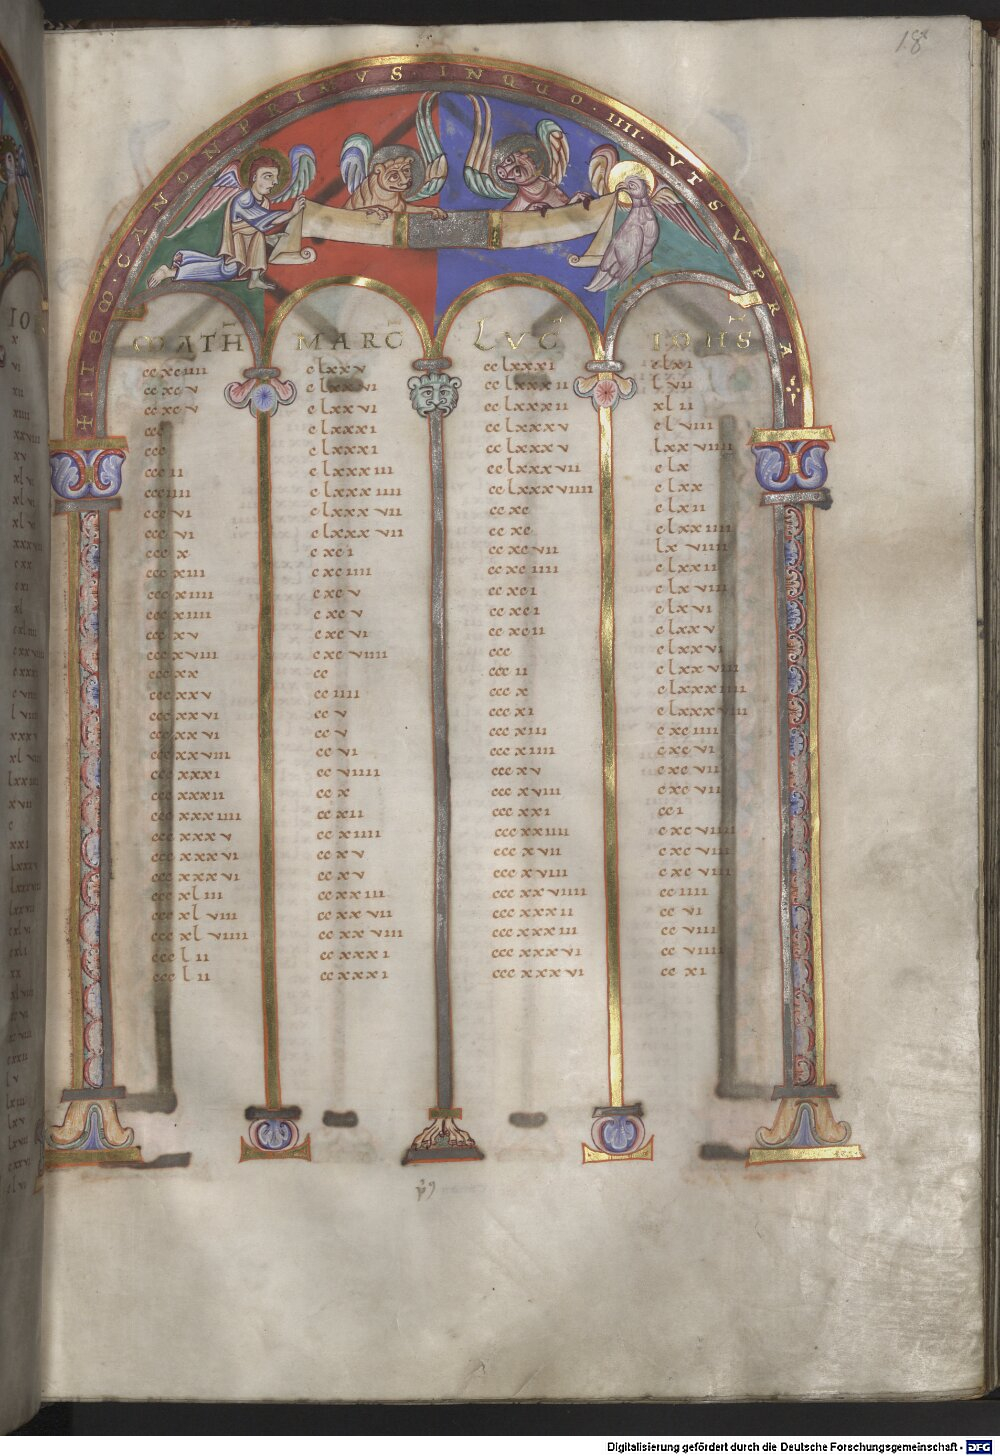 ✝ ITEM · CANON PRIMVS · IN QVO · IIII · VT SVPRA
18
MATH MARC LVC IOHS
ccxciiii clxxv cclxxxi clxi
ccxcv clxxvi cclxxxii lvii
ccxcv clxxvi cclxxxii xlii
ccc clxxxi cclxxxv clviii
ccc clxxxi cclxxxv lxxviiii
cccii clxxxiii cclxxxvii clx
ccciiii clxxxiiii cclxxxviiii clxx
cccvi clxxxvii ccxc clxii
cccvi clxxxvii ccxc clxxiiii
cccx cxci ccxcvii lxviiii
cccxiii cxciiii ccxciiii clxxii
cccxiiii cxcv ccxci clxviii
cccxiiii cxcv ccxci clxvi
cccxv cxcvi ccxcii clxxv
cccxviii cxcviiii ccc clxxvi
cccxx cc cccii clxxviii
cccxxv cciiii cccx clxxxiiii
cccxxvi ccv cccxi clxxxviii
cccxxvi ccv cccxiii cxciiii
cccxxviii ccvi cccxiiii cxcvi
cccxxxi ccviiii cccxv cxcvii
cccxxxii ccx cccxviii cxcvii
cccxxxiiii ccxii cccxxi cci
cccxxxv ccxiiii cccxxiiii cxcviiii
cccxxxvi ccxv cccxvii cxcviii
cccxxxvi ccxv cccxviii cxcviii
cccxliii ccxxiii cccxxviiii cciiii
cccxlviii ccxxvii cccxxxii ccvi
cccxlviiii ccxxviii cccxxxiii ccviii
ccclii ccxxxi cccxxxvi ccviiii
ccclii ccxxxi cccxxxvi ccxi
Digitalisierung gefördert durch die Deutsche Forschungsgemeinschaft - DFG